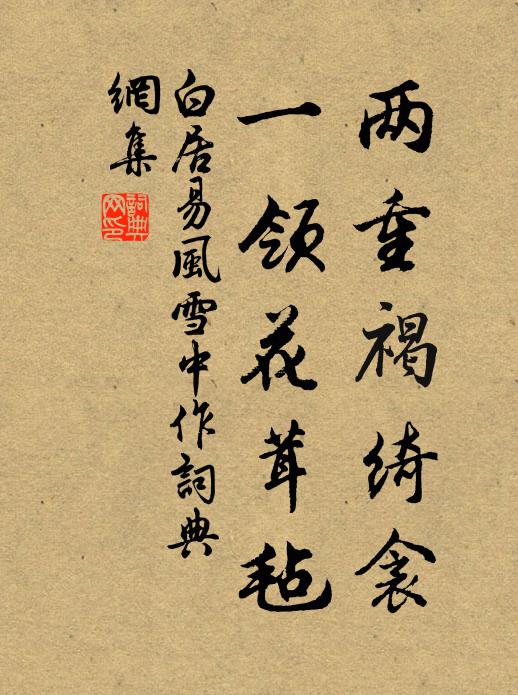 两重褐绮衾
一领花茸毡
白居易風雪中作詞典
網集
詞典
网印